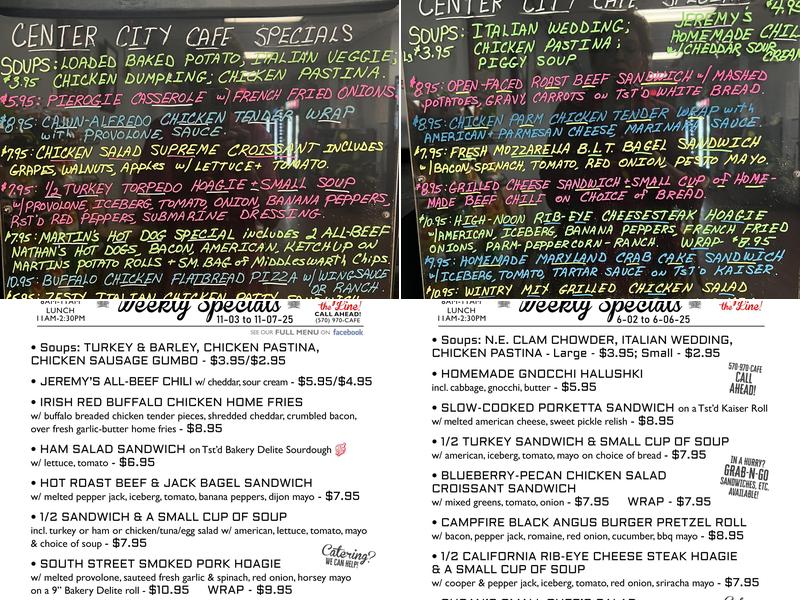 CENTER CITY CAFE SPECIALS
SOUPS: LOADED BAKED POTATO, ITALIAN VEGGIE;
$3.95 CHICKEN DUMPLING; CHICKEN PASTINA.
$5.95: PIEROGIE CASSEROLE w/ FRENCH FRIED ONIONS
$8.95: CAJUN-ALFREDO CHICKEN TENDER WRAP
with PROVOLONE, SAUCE.
$7.95: CHICKEN SALAD SUPREME CROISSANT INCLUDES
GRAPES, WALNUTS, APPLES w/ LETTUCE + TOMATO.
$7.95: 1/2 TURKEY TORPEDO HOAGIE + SMALL SOUP
w/ PROVOLONE, ICEBERG, TOMATO, ONION, BANANA PEPPERS,
RST'D RED PEPPERS, SUBMARINE DRESSING.
$7.95: MARTIN'S HOT DOG SPECIAL includes 2 ALL-BEEF
NATHAN'S HOT DOGS, BACON, AMERICAN, KETCHUP ON
MARTIN'S POTATO ROLLS + SM. BAG of MIDDLESWARTH CHIPS.
10.95: BUFFALO CHICKEN FLATBREAD PIZZA w/ WINGSAUCE
OR RANCH.
ITALIAN CHICKEN PATTY
CENTER CITY CAFE SPECIALS
SOUPS: ITALIAN WEDDING;
$3.95 CHICKEN PASTINA;
PIGGY SOUP
JEREMY'S $4.95
HOMEMADE CHILI
w/ CHEDDAR, SOUR CREAM
$8.95: OPEN-FACED ROAST BEEF SANDWICH w/ MASHED
POTATOES, GRAVY, CARROTS on TST'D WHITE BREAD.
$8.95: CHICKEN PARM CHICKEN TENDER WRAP with
AMERICAN + PARMESAN CHEESE, MARINARA SAUCE.
$7.95: FRESH MOZZARELLA B.L.T. BAGEL SANDWICH
w/ BACON, SPINACH, TOMATO, RED ONION, PESTO MAYO.
$8.95: GRILLED CHEESE SANDWICH + SMALL CUP of HOME-
MADE BEEF CHILI on CHOICE of BREAD.
$10.95: HIGH-NOON RIB-EYE CHEESESTEAK HOAGIE
w/ AMERICAN, ICEBERG, BANANA PEPPERS, FRENCH FRIED
ONIONS, PARM-PEPPERCORN-RANCH. WRAP - $8.95
$9.95: HOMEMADE MARYLAND CRAB CAKE SANDWICH
w/ ICEBERG, TOMATO, TARTAR SAUCE on TST'D KAISER.
$10.95: WINTRY MIX GRILLED CHICKEN SALAD
8AM-11AM
LUNCH
11AM-2:30PM
Weekly Specials
11-03 to 11-07-25
the Line!
CALL AHEAD!
(570) 970-CAFE
SEE OUR FULL MENU ON facebook
• Soups: TURKEY & BARLEY, CHICKEN PASTINA,
CHICKEN SAUSAGE GUMBO - $3.95/$2.95
• JEREMY'S ALL-BEEF CHILI w/ cheddar, sour cream - $5.95/$4.95
• IRISH RED BUFFALO CHICKEN HOME FRIES
w/ buffalo breaded chicken tender pieces, shredded cheddar, crumbled bacon,
over fresh garlic-butter home fries - $8.95
• HAM SALAD SANDWICH on Tst'd Bakery Delite Sourdough
w/ lettuce, tomato - $6.95
• HOT ROAST BEEF & JACK BAGEL SANDWICH
w/ melted pepper jack, iceberg, tomato, banana peppers, dijon mayo - $7.95
• 1/2 SANDWICH & A SMALL CUP OF SOUP
incl. turkey or ham or chicken/tuna/egg salad w/ american, lettuce, tomato, mayo
& choice of soup - $7.95
• SOUTH STREET SMOKED PORK HOAGIE
w/ melted provolone, sauteed fresh garlic & spinach, red onion, horsey mayo
on a 9" Bakery Delite roll - $10.95 WRAP - $9.95
Catering?
WE CAN HELP!
8AM-11AM
LUNCH
11AM-2:30PM
Weekly Specials
6-02 to 6-06-25
the Line!
• Soups: N.E. CLAM CHOWDER, ITALIAN WEDDING,
CHICKEN PASTINA - Large - $3.95; Small - $2.95
• HOMEMADE GNOCCHI HALUSHKI
incl. cabbage, gnocchi, butter - $5.95
570-970-CAFE
CALL
AHEAD!
• SLOW-COOKED PORKETTA SANDWICH on a Tst'd Kaiser Roll
w/ melted american cheese, sweet pickle relish - $8.95
• 1/2 TURKEY SANDWICH & SMALL CUP OF SOUP
w/ american, iceberg, tomato, mayo on choice of bread - $7.95
IN A HURRY?
GRAB-N-GO
SANDWICHES, ETC.
AVAILABLE!
• BLUEBERRY-PECAN CHICKEN SALAD
CROISSANT SANDWICH
w/ mixed greens, tomato, onion - $7.95 WRAP - $7.95
• CAMPFIRE BLACK ANGUS BURGER PRETZEL ROLL
w/ bacon, pepper jack, romaine, red onion, cucumber, bbq mayo - $8.95
• 1/2 CALIFORNIA RIB-EYE CHEESE STEAK HOAGIE
& A SMALL CUP OF SOUP
w/ cooper & pepper jack, iceberg, tomato, red onion, sriracha mayo - $7.95